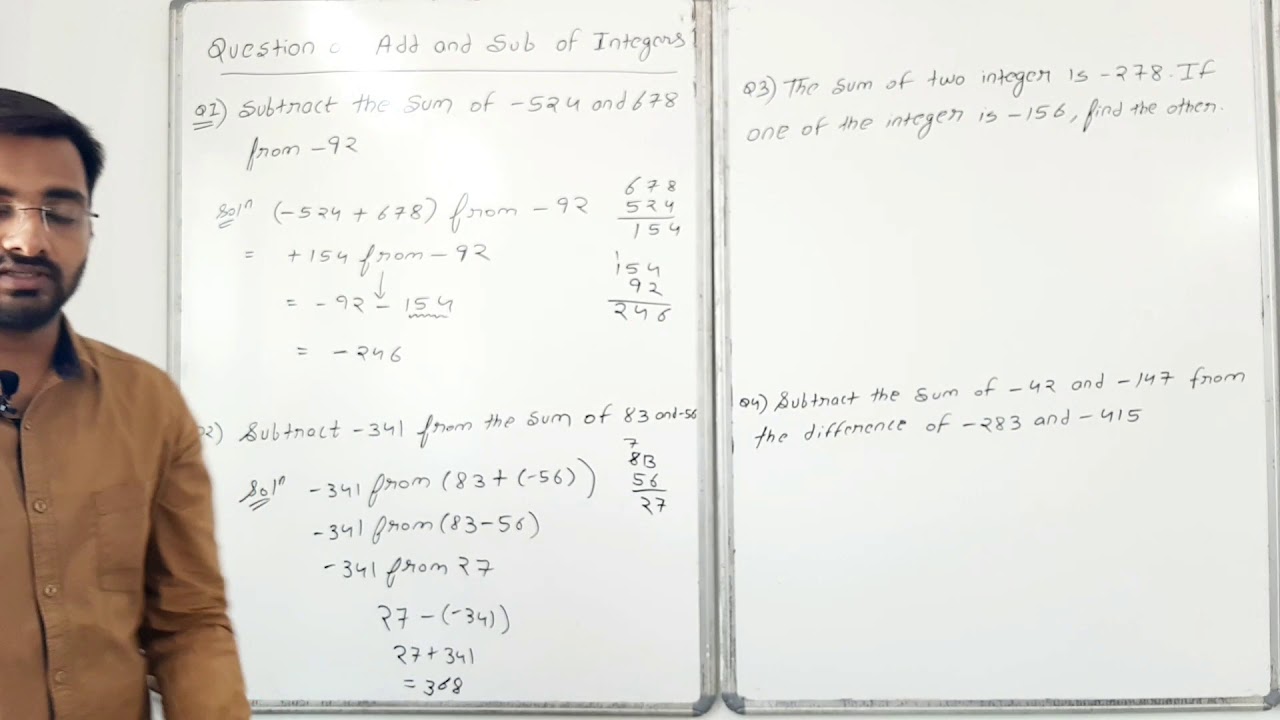 Question o Add and Sub of Integers
Q1) Subtract the sum of -524 and 678
from -92
Solⁿ (-524 + 678) from -92
= +154 from -92
= -92 - 154
= -246
678
524
154
1
154
92
246
2) Subtract -341 from the sum of 83 and -56
Solⁿ -341 from (83 + (-56))
-341 from (83-56)
-341 from 27
27 - (-341)
27 + 341
= 368
7
813
56
27
Q3) The sum of two integer is -278. If
one of the integer is -156, find the other.
Q4) Subtract the sum of -42 and -147 from
the difference of -283 and -415